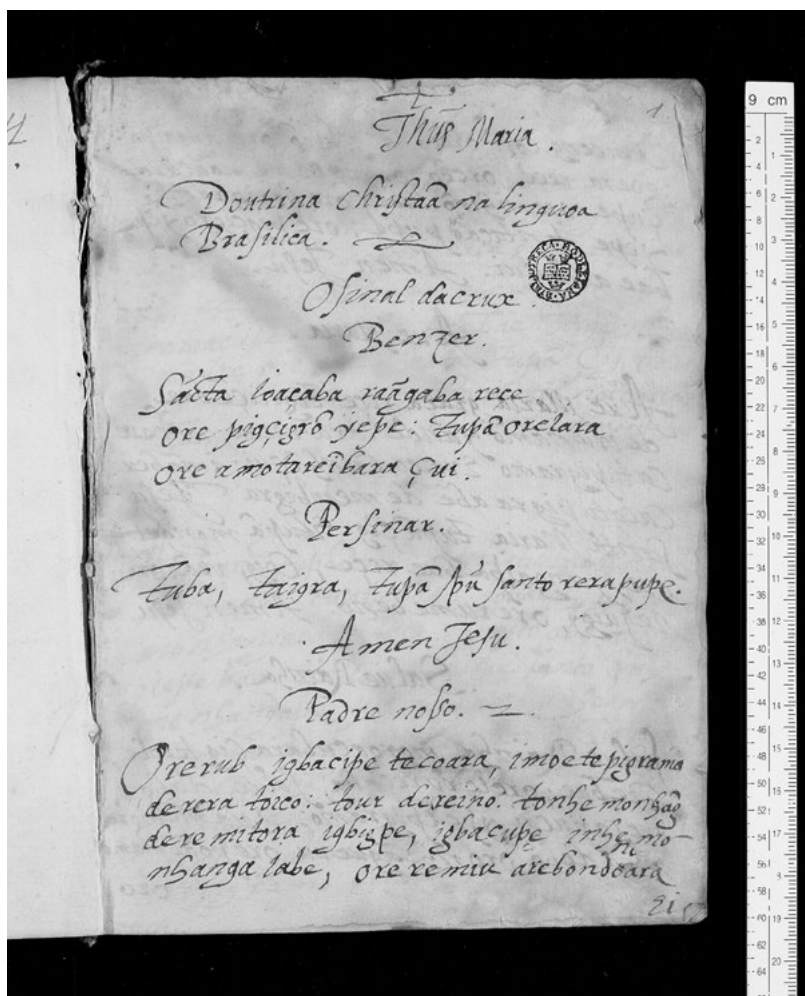 1
Jhũs Maria.
Doutrina Christaã na linguoa
Brasilica.
BIBLIOTHECA BODLEIANA
O sinal da crux
Benzer.
Sãcta ioaçaba raãgaba rece
ore pigcigrõ yepe: Tupã orelara
ore amotareĩbara çui.
Persinar.
Tuba, Taigra, Tupã spũ santo rera pupe.
Amen Jesu.
Padre nosso.
Orerub igbacipe tecoara, imoetepigrama
derera toico: tour dereino. tonhemonhãg
deremitora igbigpe, igbacupe inhemo-
nhanga iabe, ore remiu arebondoara
9 cm